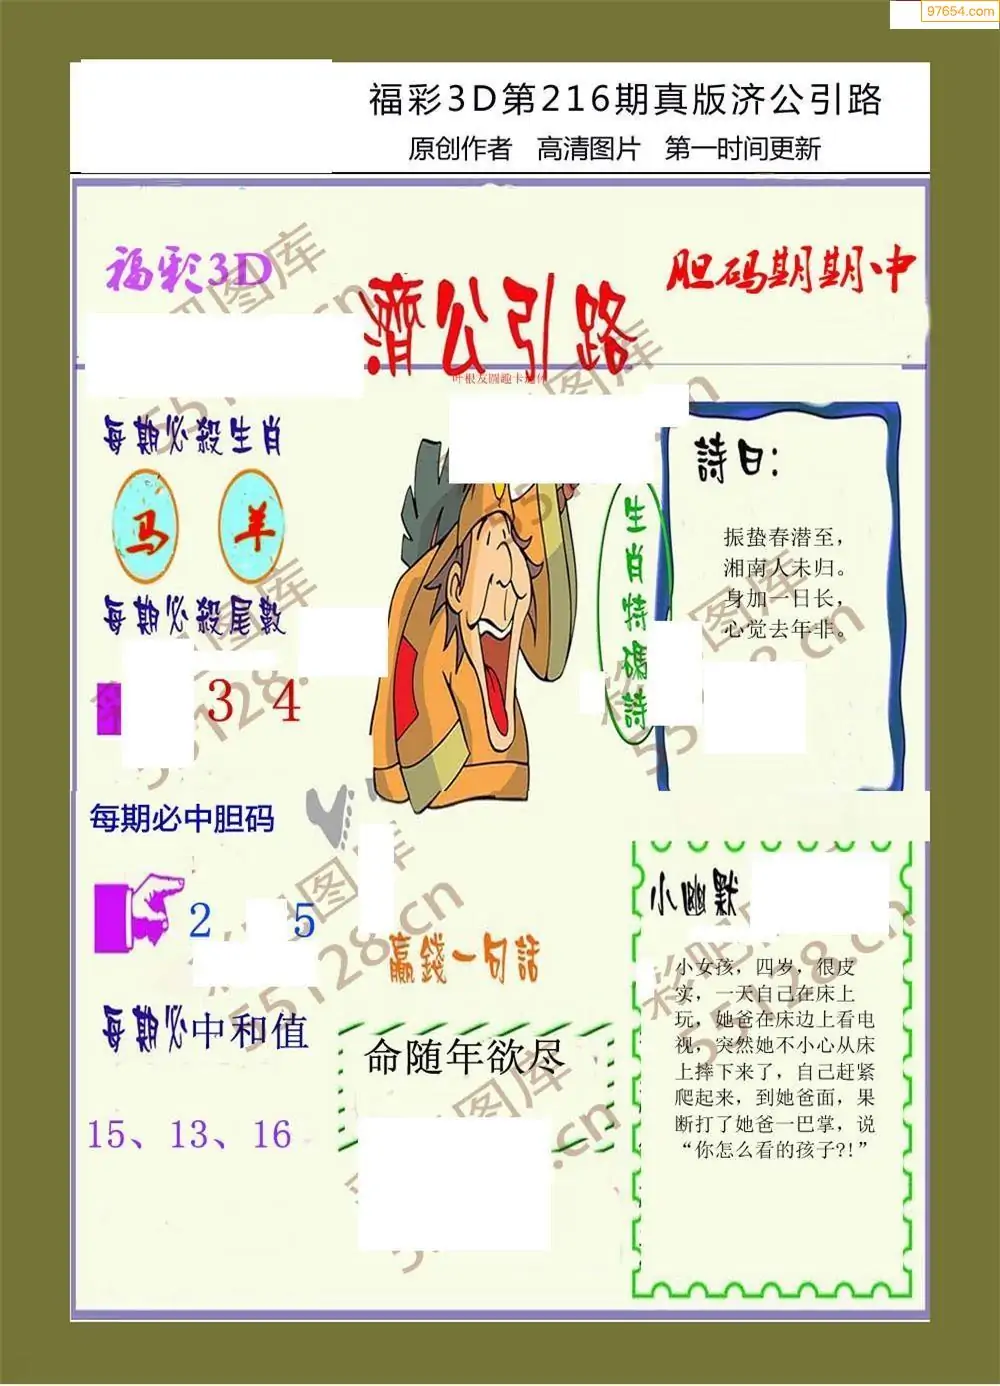 97654.com
福彩3D第216期真版济公引路
原创作者 高清图片 第一时间更新
福彩3D
濟公引路
胆码期期中
每期必殺生肖
马 羊
每期必殺尾數
3 4
生肖特碼詩
詩曰:
振蛰春潜至，
湘南人未归。
身加一日长，
心觉去年非。
每期必中胆码
2 5
每期必中和值
15、13、16
贏錢一句話
命随年欲尽
小幽默
小女孩，四岁，很皮
实，一天自己在床上
玩，她爸在床边上看电
视，突然她不小心从床
上摔下来了，自己赶紧
爬起来，到她爸面，果
断打了她爸一巴掌，说
“你怎么看的孩子?!”
彩吧图库
55128.cn